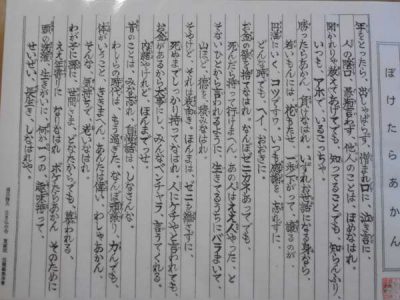 ぼけたらあかん
年をとったら、出しゃばらず、憎まれ口に、泣き言に、
人の陰口、愚痴言わず、他人のことは、ほめなはれ
聞かれりゃ教えてあげても、知ってることでも、知らんふり
いつも、アホで、いるこっちゃ
勝ったらあかん、負けなはれ、いずれお世話になる身なら
若いもんには、花もたせ、一歩下がって、譲るのが
円満にいく、コツですわ、いつも感謝を、忘れずに、
どんな時でも、へーおおきに、
お金の欲を、捨てなはれ、なんぼゼニカネあっても、
死んだら持って行けまへん、あの人はええ人やった、と
そないひとから言われるように、生きてるうちにバラまいて、
山ほど、徳を、積みなはれ
そやけど、それは表向き、ほんまは、ゼニを離さずに、
死ぬまでしっかり、持ってなはれ、人にケチやと言われても、
お金があるから大事にし、みんなベンチャラ、言うてくれる、
内緒やけれど、ほんまでっせ、
昔のことは、みな忘れ、自慢話は、しなさんな、
わしらの時代は、もう過ぎた、なんぼ頑張り、力んでも、
体がいうこと、ききまへん、あんたは偉い、わしゃあかん、
そんな気持ちで、おりなはれ、
わが子に孫に、世間さま、どなたからでも、慕われる、
ええ年寄りに、なりなはれ、ボケたらあかん、そのために
頭の洗濯、生きがいに、何か一つの、趣味持って、
せいぜい、長生き、しなはれや